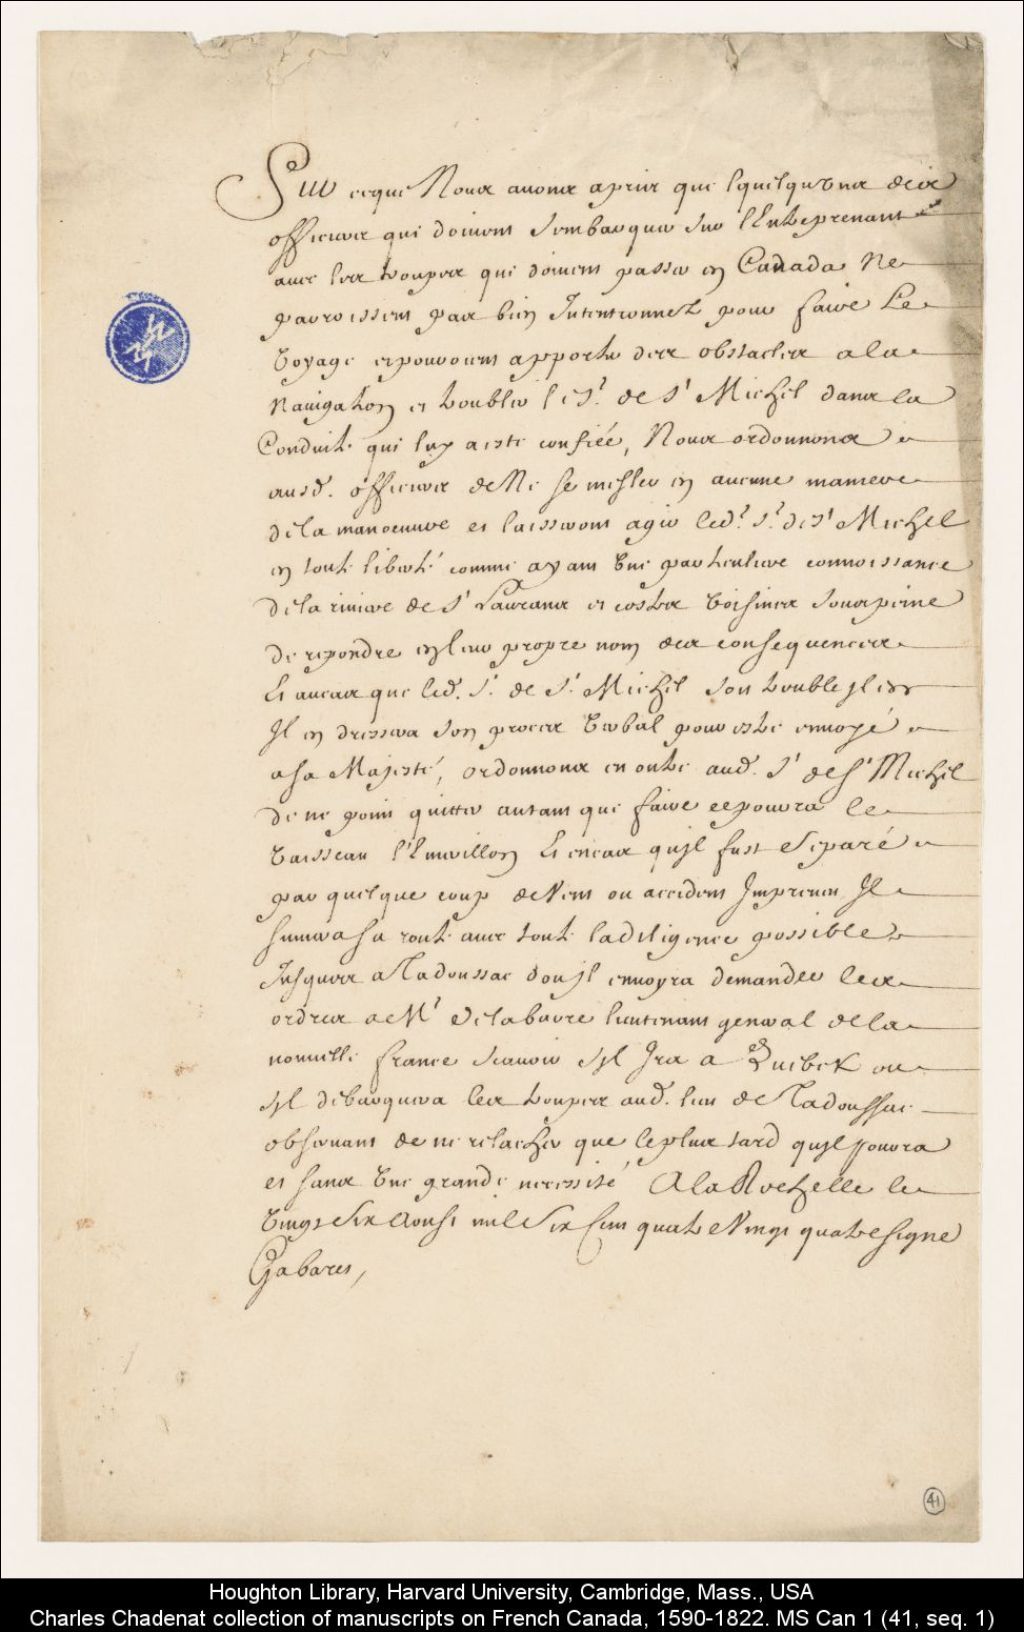 Sur ceque Nous auons apris que lquelqu'vns des
officiers qui doiuent sembarquer sur l'Entreprenant
auec les trouppes qui doiuent passer en Canada Ne
paroissent pas bien Intentionnez pour faire Le
Voyage et pouroient apporter des obstacles a la
Nauigation et troubler le Sr. de St Michel dans la
Conduite qui luy a esté confiée, Nous ordonnons
ausd. officiers de Ne se mesler en aucune maniere
de la manoeuure et laisseront agir led. Sr. de St Michel
en toute liberté comme ayant vne particuliere connoissance
de la riuiere de St Laurans et costes voisines sous peine
de repondre en leur propre nom des consequences
Et aucas que led. Sr. de St. Michel soit troublé Il
Il en dressera son procez verbal pour estre enuoyé
a sa Majesté, ordonnons en outre aud. Sr de St Michel
de ne point quitter autant que faire ce poura le
vaisseau l'Emerillon Et encas quil fust Separé
par quelque coup de Vent ou accident Impreueu Il
suiuera sa route auec toute la diligence possible
Jusques a Tadoussac dou jl enuoyra demander les
ordres a Mr De la barre lieutenant general de la
nouuelle france scauoir sjl Ira a Quebek ou
sjl debarquera les troupes aud. lieu de Tadoussac
obseruant de ne relacher que le plus tard quil poura
et sans vne grande necessité A la Rochelle le
vingt Six Aoust mil Six Cent quatre Vingt quatre signé
Gabaret,
41
Houghton Library, Harvard University, Cambridge, Mass., USA
Charles Chadenat collection of manuscripts on French Canada, 1590-1822. MS Can 1 (41, seq. 1)